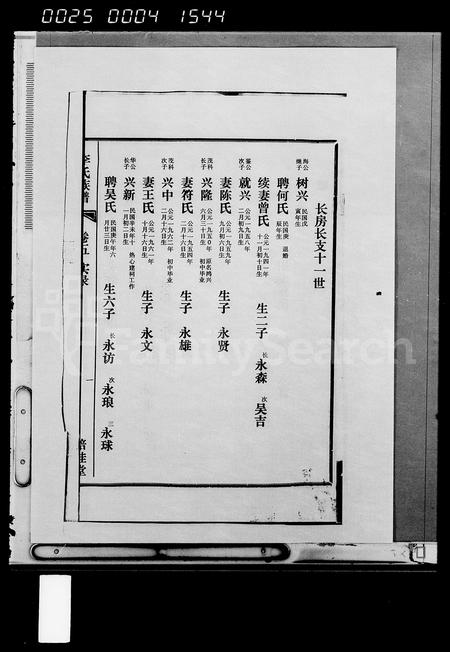 0025 0004 1544
长房长支十一世
海公继子 树兴 民国戊寅年生
聘何氏 民国庚辰年生 退婚
续妻曾氏 公元一九四一年十一月初十日生 生二子 长 永森 次 吴吉
鉴公次子 就兴 公元一九五八年二月初九日生
妻陈氏 公元一九五九年九月初六日生 生子 永贤
茂科长子 兴隆 公元一九五〇年六月三十日生 原名鸿兴 初中毕业
妻符氏 公元一九五四年二月十六日生 生子 永雄
茂科次子 兴中 公元一九六二年二月十六日生 初中毕业
妻王氏 公元一九六一年十月十六日生 生子 永文
华公长子 兴新 民国辛未年十一月初二日生 热心建祠工作
聘吴氏 民国庚午年六月廿三日生 生六子 长 永访 次 永琅 三 永球
李氏族谱 卷五 实录 一 培桂堂
FamilySearch